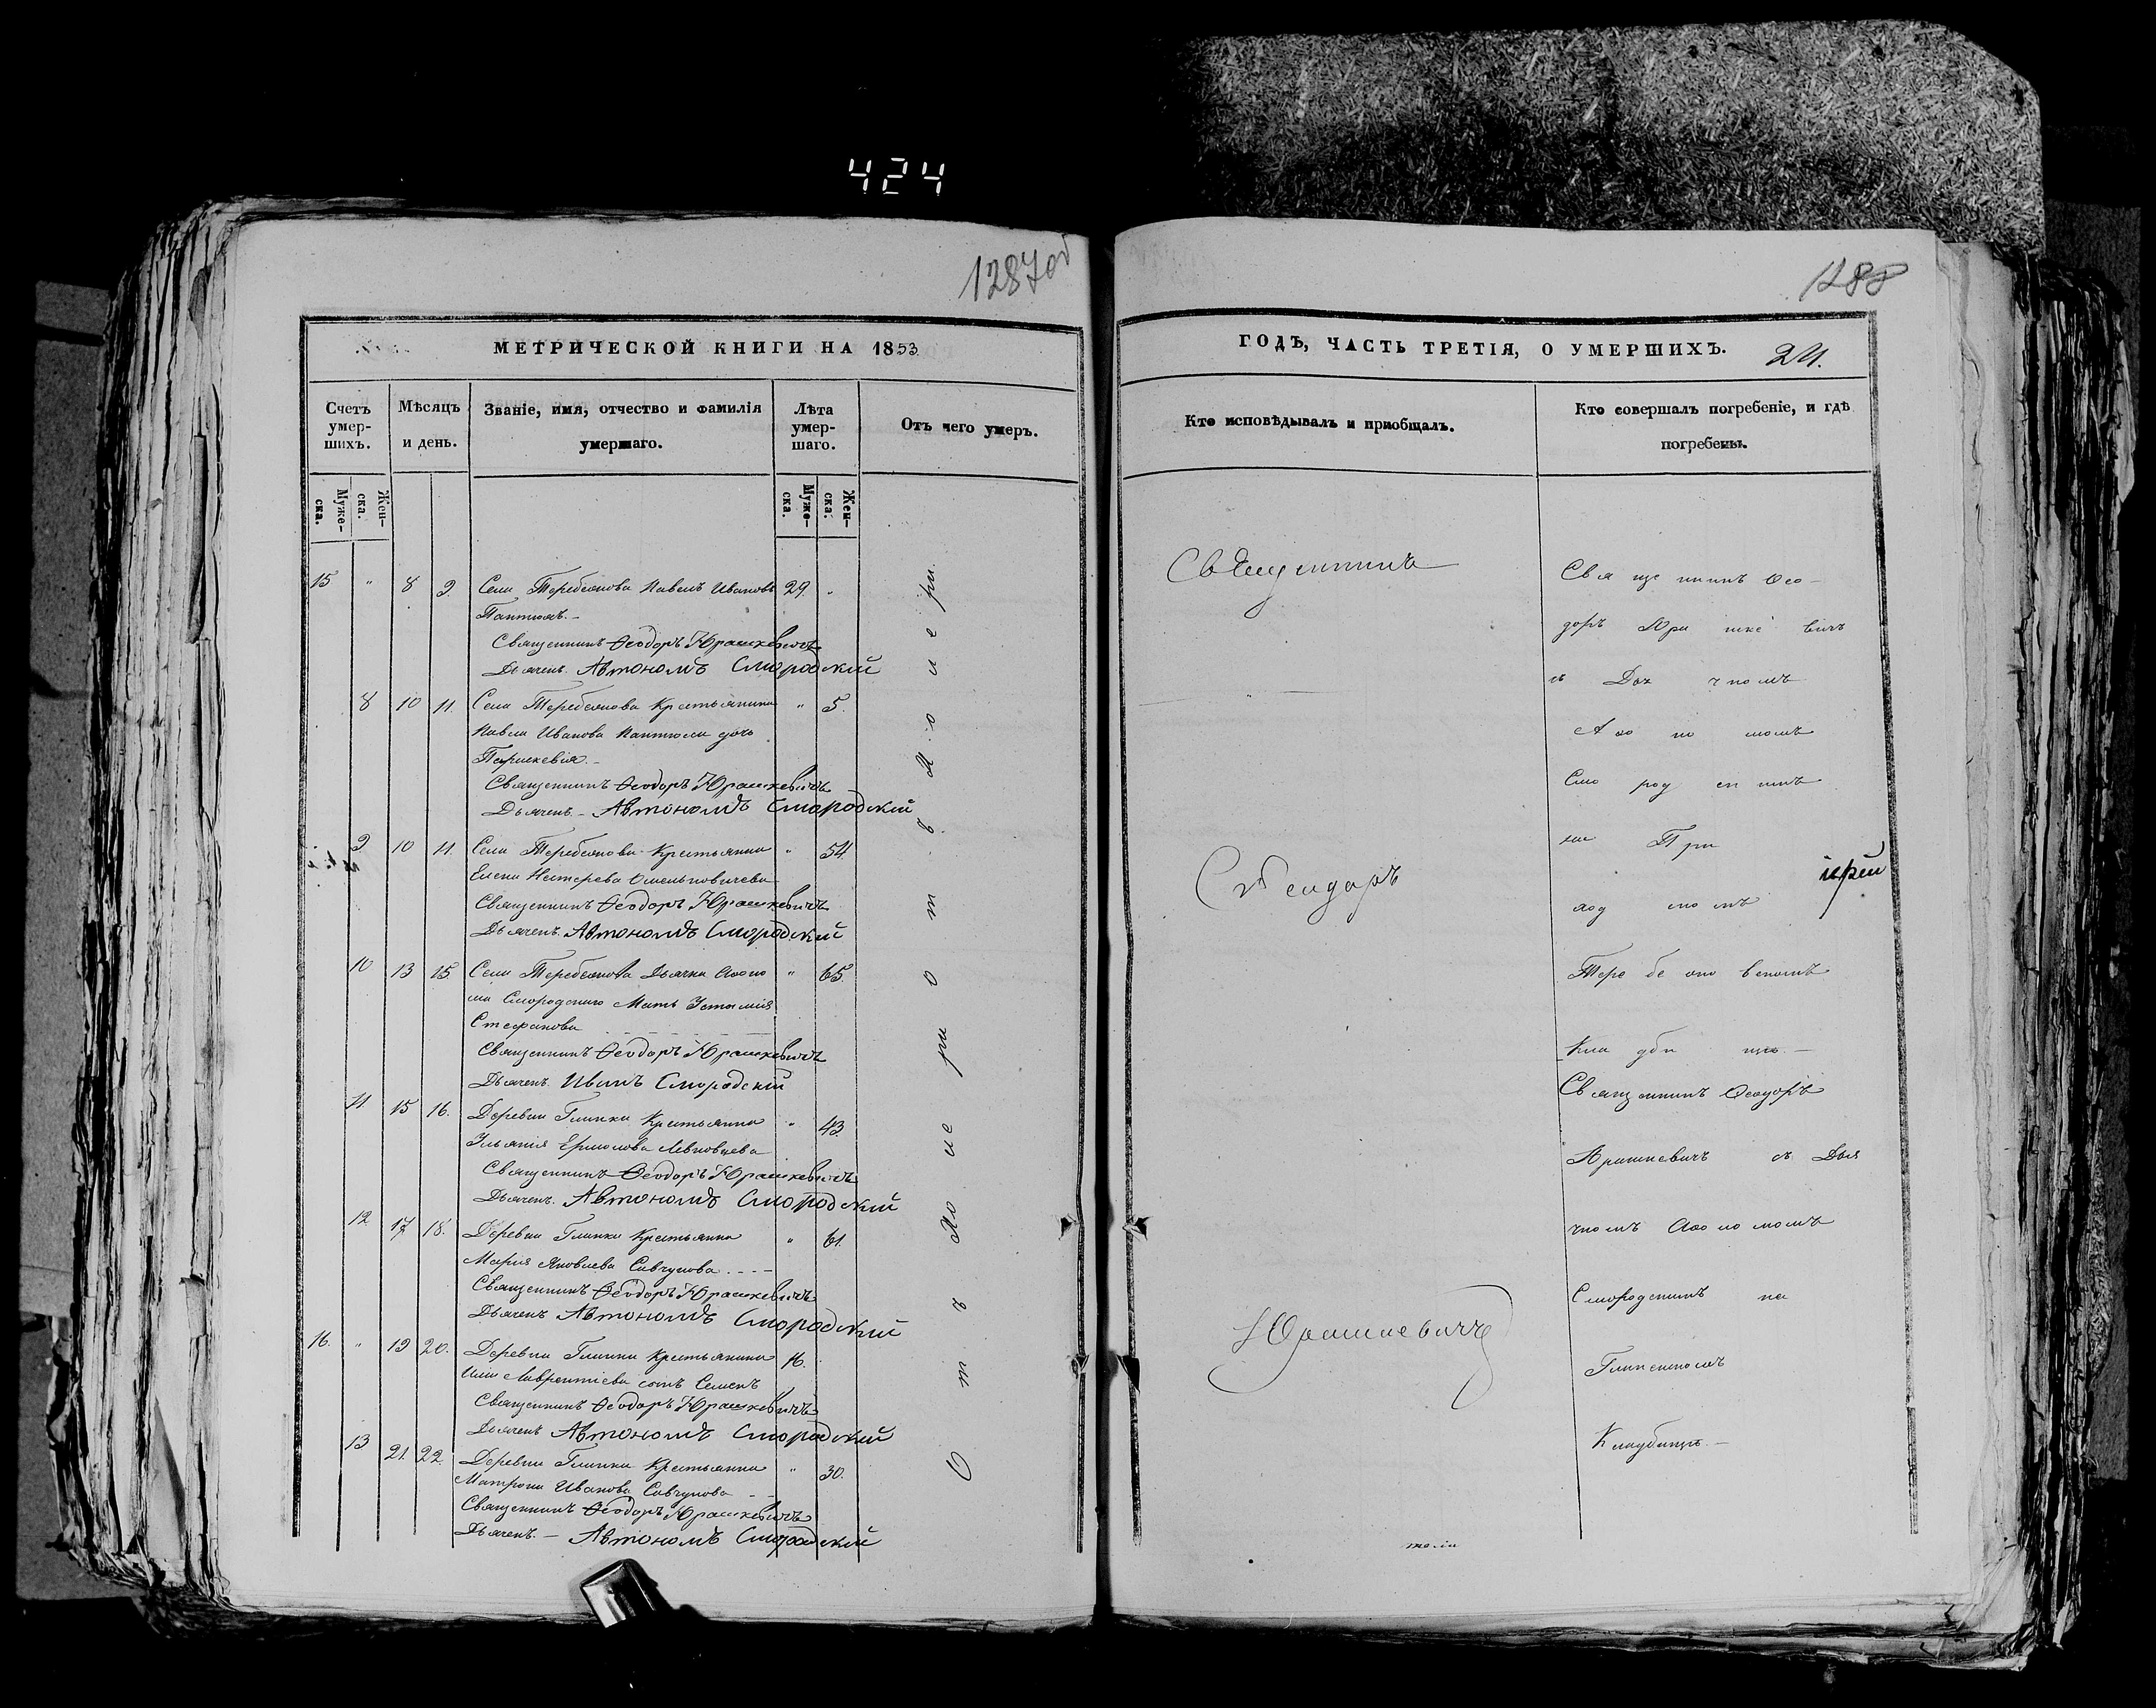 424
1287об
МЕТРИЧЕСКОЙ КНИГИ НА 1853
Счетъ умер-шихъ.
Мѣсяцъ и день.
Званіе, имя, отчество и фамилія умершаго.
Лѣта умер-шаго.
Отъ чего умеръ.
Муже-ска.
Жен-ска.
Муже-ска.
Жен-ска.
15 " 8 9. Села Теребежова Павелъ Ивановъ 29. "
Пантюхъ.
Священникъ Ѳеодоръ Юрашкевичъ
Дьячекъ Автономъ Смородскій
8 10 11. Села Теребежова Крестьянина " 5.
Павла Иванова Пантюха дочь
Параскевія.
Священникъ Ѳеодоръ Юрашкевичъ
Дьячекъ Автономъ Смородскій
9 10 11. Села Теребежова Крестьянка " 54.
Елена Нестерова
Священникъ Ѳеодоръ Юрашкевичъ
Дьячекъ Автономъ Смородскій
10 13 15 Села Теребежова Дьячка " 65.
Смородскаго Мать
Стефанова
Священникъ Ѳеодоръ Юрашкевичъ
Дьячекъ Иванъ Смородскій
11 15 16. Деревни Глинки Крестьянка " 43.
Ермолова
Священникъ Ѳеодоръ Юрашкевичъ
Дьячекъ Автономъ Смородскій
12 17 18. Деревни Глинки Крестьянка " 61.
Марія Яковлева Савчукова
Священникъ Ѳеодоръ Юрашкевичъ
Дьячекъ Автономъ Смородскій
16. " 19 20. Деревни Глинки Крестьянина 16.
Лаврентіева сынъ Семенъ
Священникъ Ѳеодоръ Юрашкевичъ
Дьячекъ Автономъ Смородскій
13 21. 22. Деревни Глинки Крестьянка " 30.
Матрона Иванова Савчукова
Священникъ Ѳеодоръ Юрашкевичъ
Дьячекъ Автономъ Смородскій
Отъ холеры отъ холеры
1288
ГОДЪ, ЧАСТЬ ТРЕТІЯ, О УМЕРШИХЪ.
24.
Кто исповѣдывалъ и пріобщалъ.
Кто совершалъ погребеніе, и гдѣ погребены.
Священникъ
Ѳеодоръ
Юрашкевичъ
Священникъ Ѳео-
доръ Юрашкевичъ
съ Дьячкомъ
Смородскимъ
на При
ходскомъ
Теребежовскомъ
Кладбищѣ.
Священникъ Ѳеодоръ
Юрашкевичъ съ Дья
чкомъ
Смородскимъ на
Глинскомъ
Кладбищѣ.